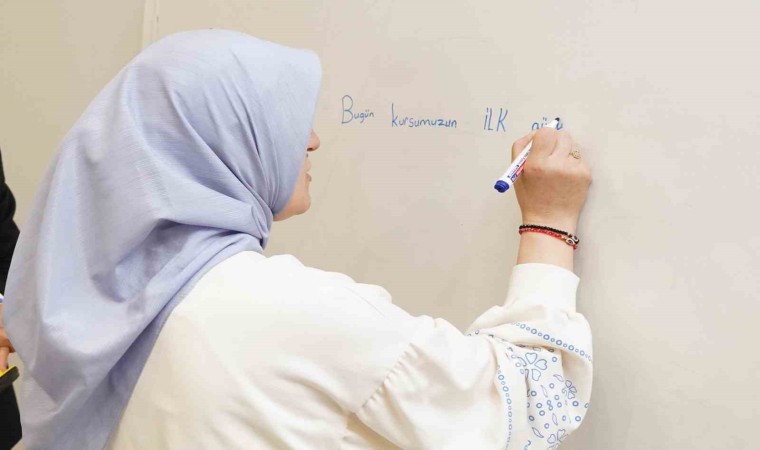 Bugün kursumuzun İLK günü